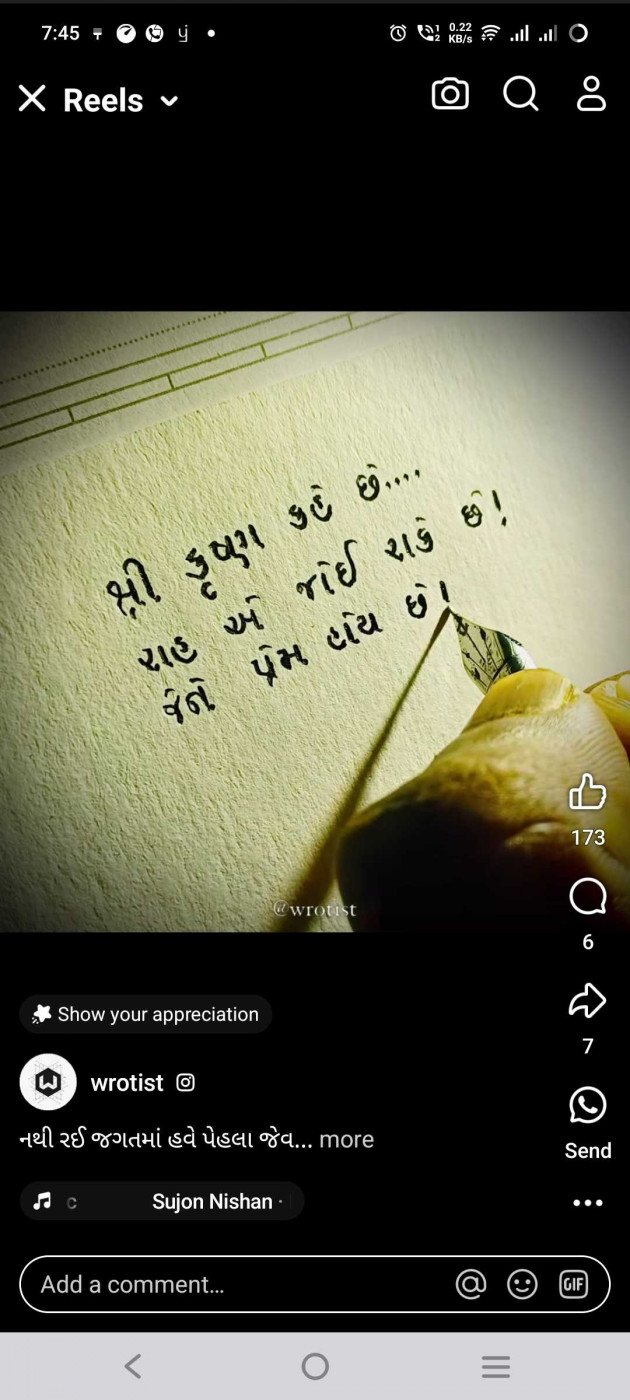 7:45
0.22
KB/s
Reels
શ્રી કૃષ્ણ કહે છે....
રાહ એ જોઈ શકે છે!
જેને પ્રેમ હોય છે!
@wrotist
173
6
7
Show your appreciation
wrotist
નથી રઈ જગતમાં હવે પેહલા જેવ... more
Send
c Sujon Nishan ·
Add a comment...
GIF